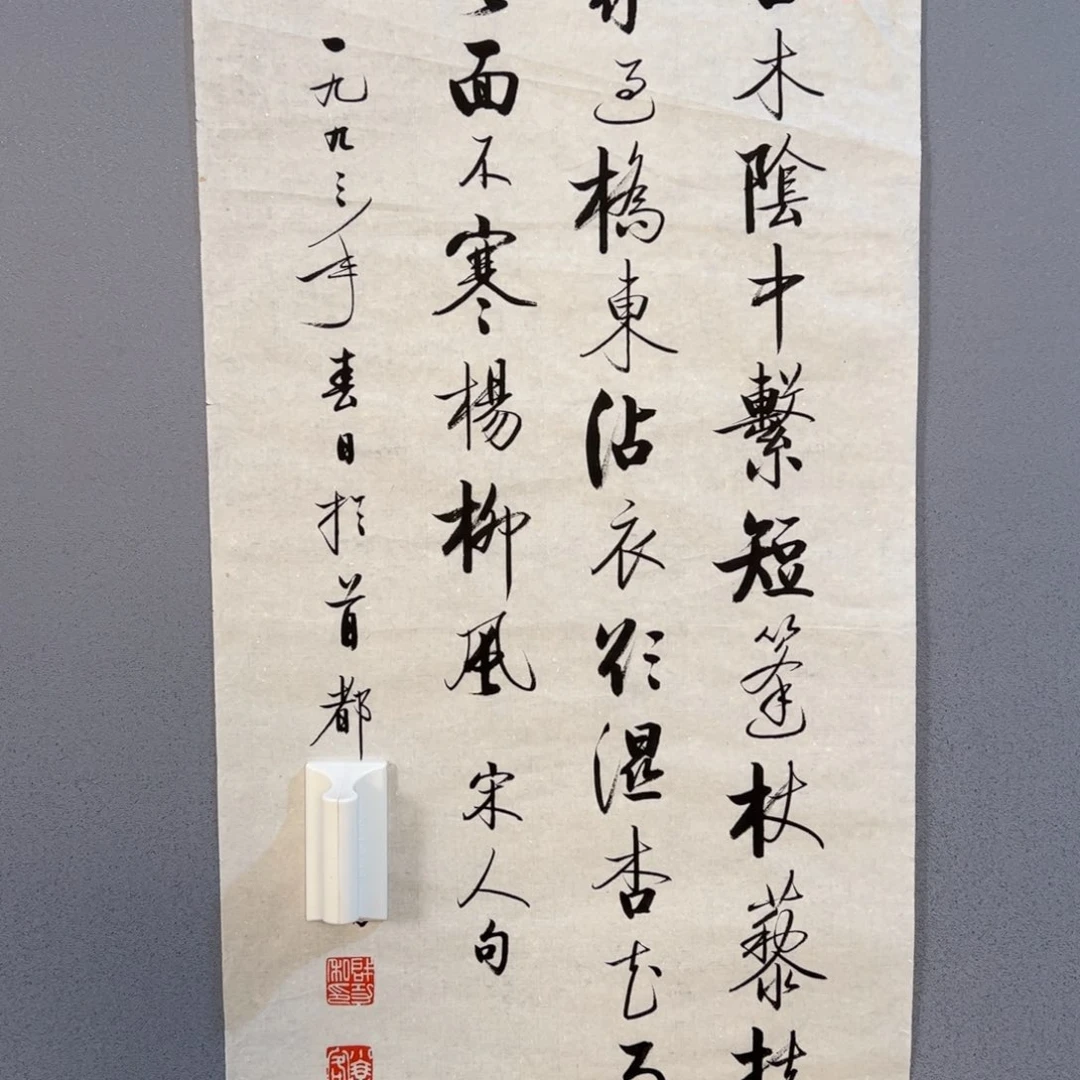 木陰中繫短篷杖藜扶
過橋東沾衣欲濕杏花
面不寒楊柳風 宋人句
一九九三年春日於首都